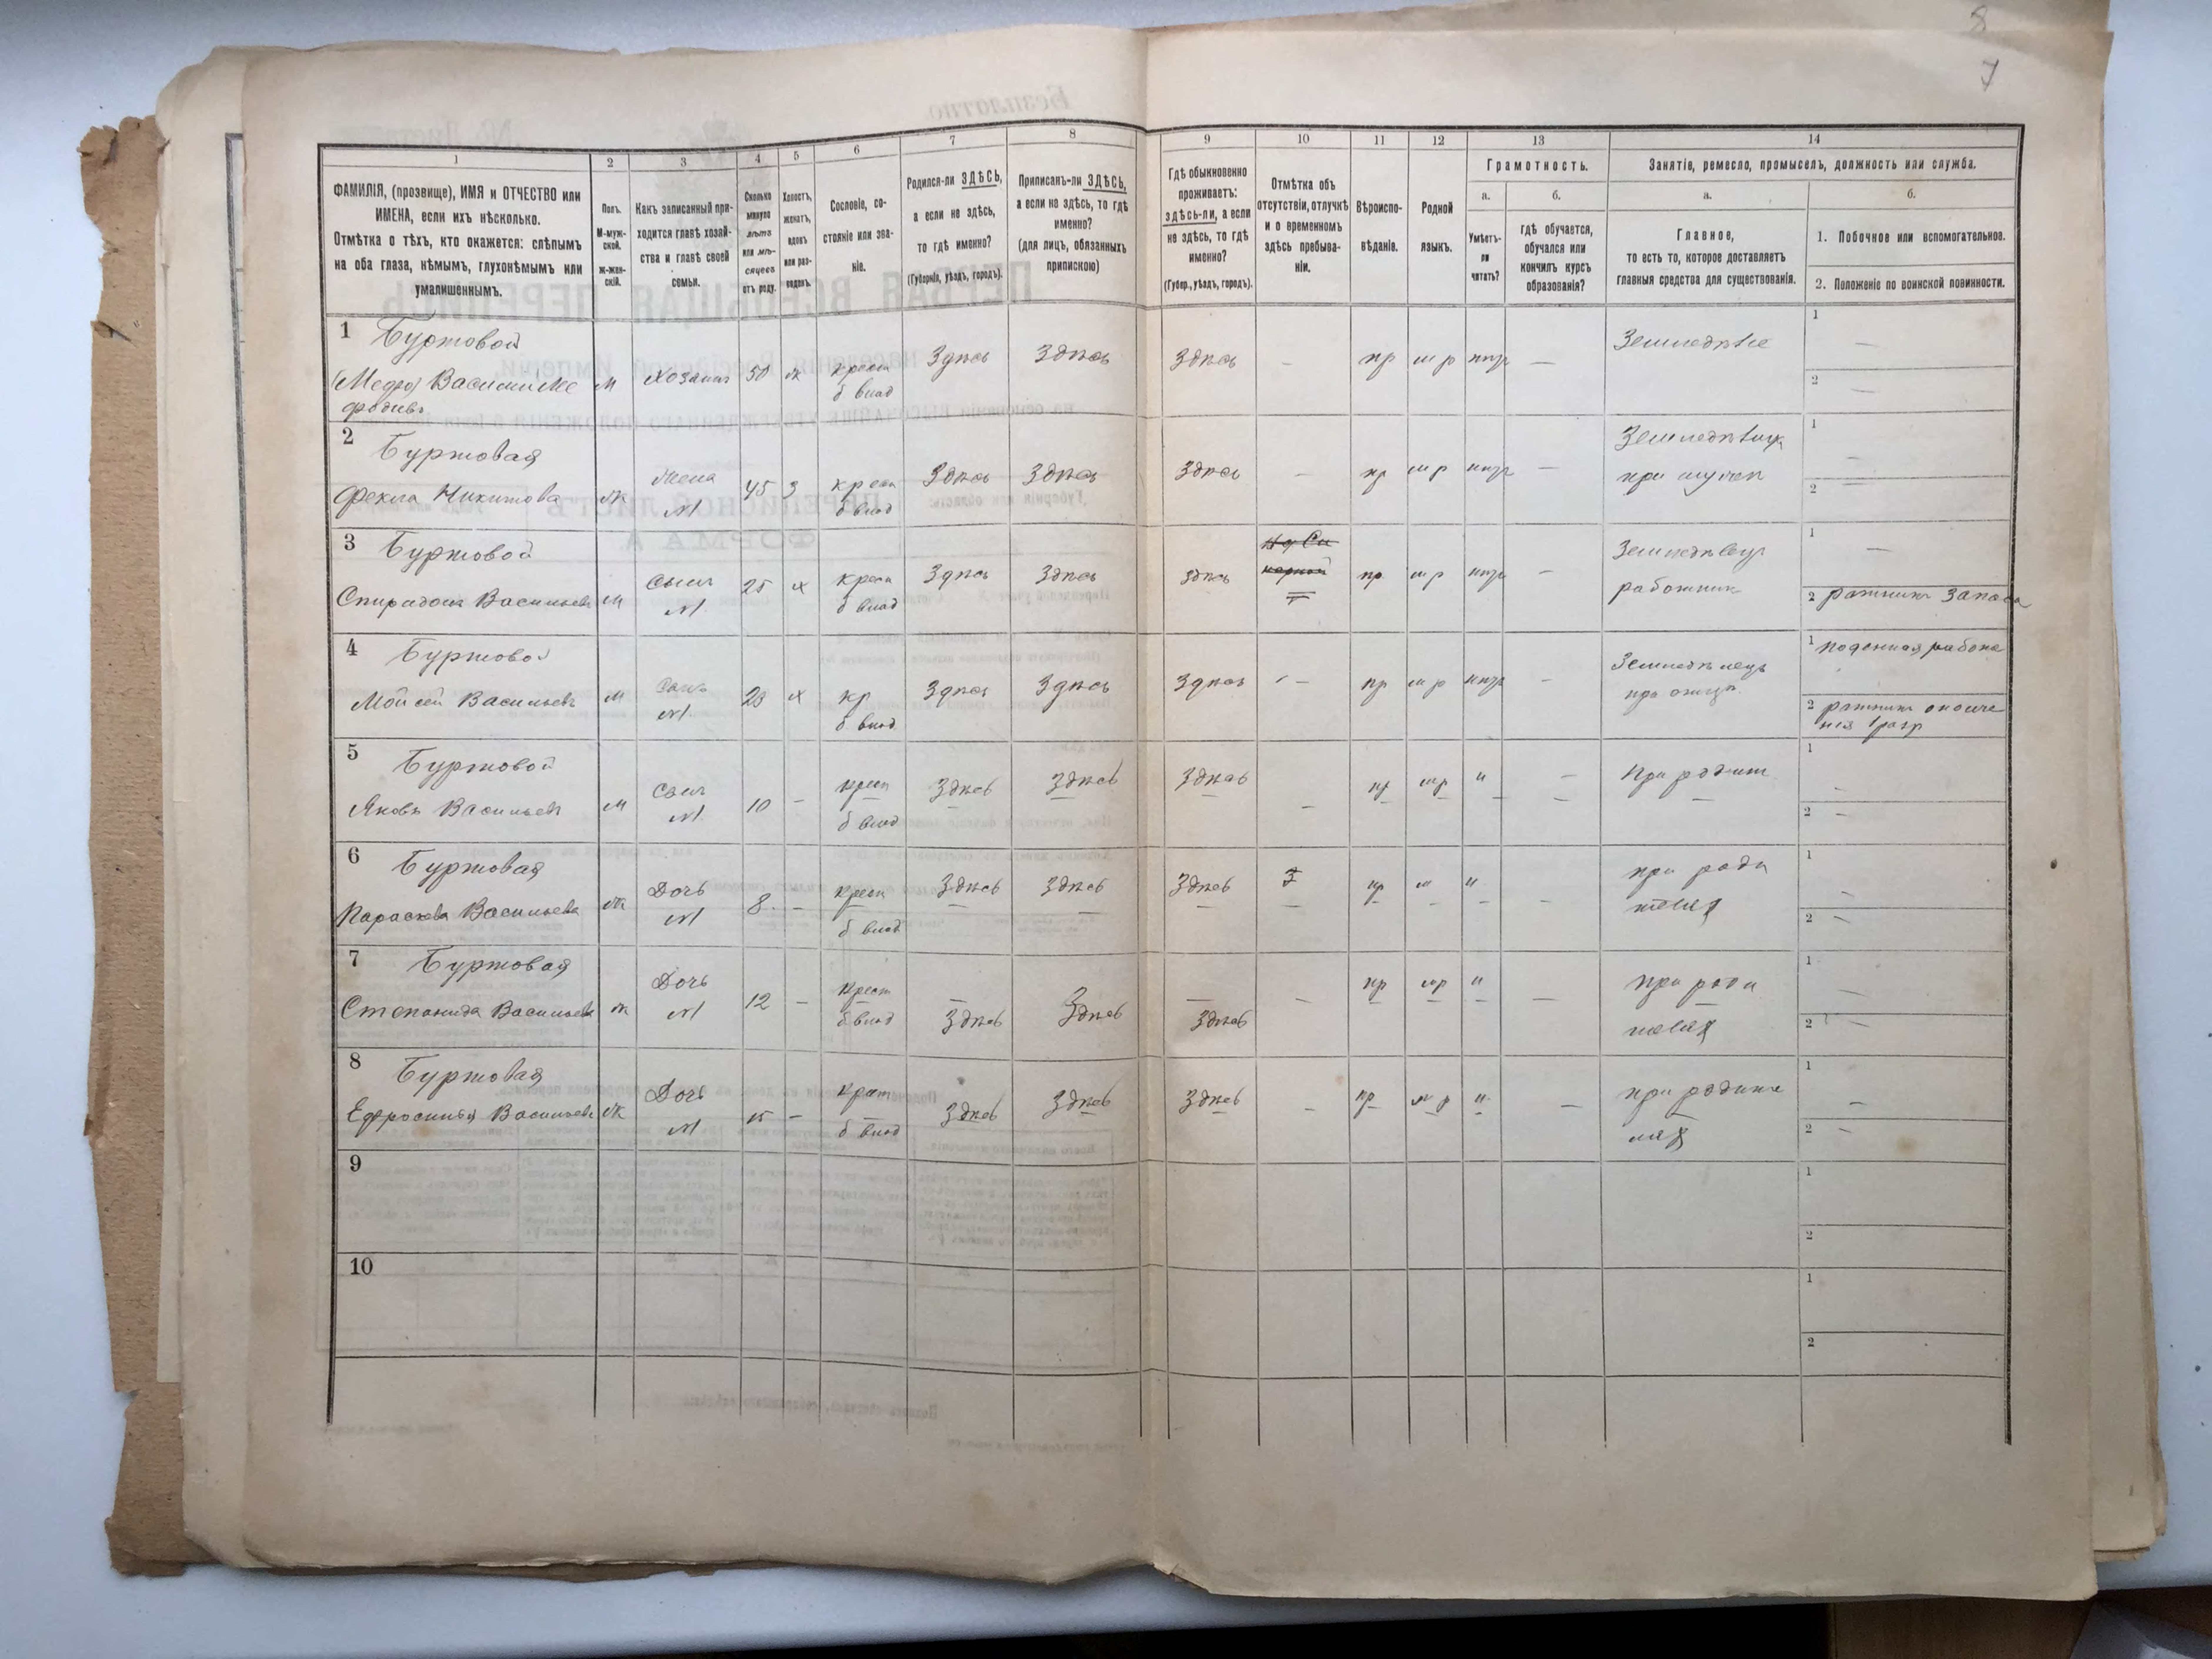 8
7
1
2
3
4
5
6
7
8
9
10
11
12
13
14
ФАМИЛІЯ, (прозвище), ИМЯ и ОТЧЕСТВО или
ИМЕНА, если ихъ нѣсколько.
Отмѣтка о тѣхъ, кто окажется: слѣпымъ
на оба глаза, нѣмымъ, глухонѣмымъ или
умалишеннымъ.
Полъ.
М-муж-
ской.
ж-жен-
скій.
Какъ записанный при-
ходится главѣ хозяй-
ства и главѣ своей
семьи.
Сколько
минуло
лѣтъ
или мѣ-
сяцевъ
отъ роду.
Холостъ,
женатъ,
вдовъ
или раз-
веденъ.
Сословіе, со-
стояніе или зва-
ніе.
Родился-ли ЗДѢСЬ,
а если не здѣсь,
то гдѣ именно?
(Губернія, уѣздъ, городъ).
Приписанъ-ли ЗДѢСЬ,
а если не здѣсь, то гдѣ
именно?
(для лицъ, обязанныхъ
припискою)
Гдѣ обыкновенно
проживаетъ:
здѣсь-ли, а если
не здѣсь, то гдѣ
именно?
(Губер., уѣздъ, городъ).
Отмѣтка объ
отсутствіи, отлучкѣ
и о временномъ
здѣсь пребыва-
ніи.
Вѣроиспо-
вѣданіе.
Родной
языкъ.
Грамотность.
а.
Умѣетъ-
ли
читать?
б.
гдѣ обучается,
обучался или
кончилъ курсъ
образованія?
Занятіе, ремесло, промыселъ, должность или служба.
а.
Главное,
то есть то, которое доставляетъ
главныя средства для существованія.
б.
1. Побочное или вспомогательное.
2. Положеніе по воинской повинности.
1 Буртовой
Василий Ме
фодьев
м Хозяин 50 ж
крест
б влад
Здѣсь Здѣсь Здѣсь — пр мр —
1 —
2 —
2 Буртовая
Фекла Никитова
ж Жена
45 з
крест
б влад
Здѣсь Здѣсь Здѣсь — пр мр —
при мужѣ
1 —
2 —
3 Буртовой
Спиридон Васильевъ
м Сынъ
25 х
крест
б влад
Здѣсь Здѣсь Здѣсь пр мр —
работник
1 —
2 ратник запаса
4 Буртовой
Мойсей Васильевъ
м Сынъ
23 х
кр
б влад
Здѣсь Здѣсь Здѣсь — пр мр —
Земледѣлецъ
при отцѣ
1 поденная работа
2 ратник ополче
ния 1 разр
5 Буртовой
Яковъ Васильевъ
м Сынъ
10 —
крест
б влад
Здѣсь Здѣсь Здѣсь — пр мр " —
При родит
1 —
2 —
6 Буртовая
Параскева Васильева
ж Дочь
8 —
крест
б влад
Здѣсь Здѣсь Здѣсь — пр м " —
при роди
телях
1 —
2 —
7 Буртовая
Степанида Васильева
ж Дочь
12 —
крест
б влад
Здѣсь Здѣсь Здѣсь — пр мр " —
при роди
телях
1 —
2 —
8 Буртовая
Ефросинья Васильева
ж Дочь
15 —
крест
б влад
Здѣсь Здѣсь Здѣсь — пр мр " —
при родите
лях
1 —
2 —
9
1
2
10
1
2